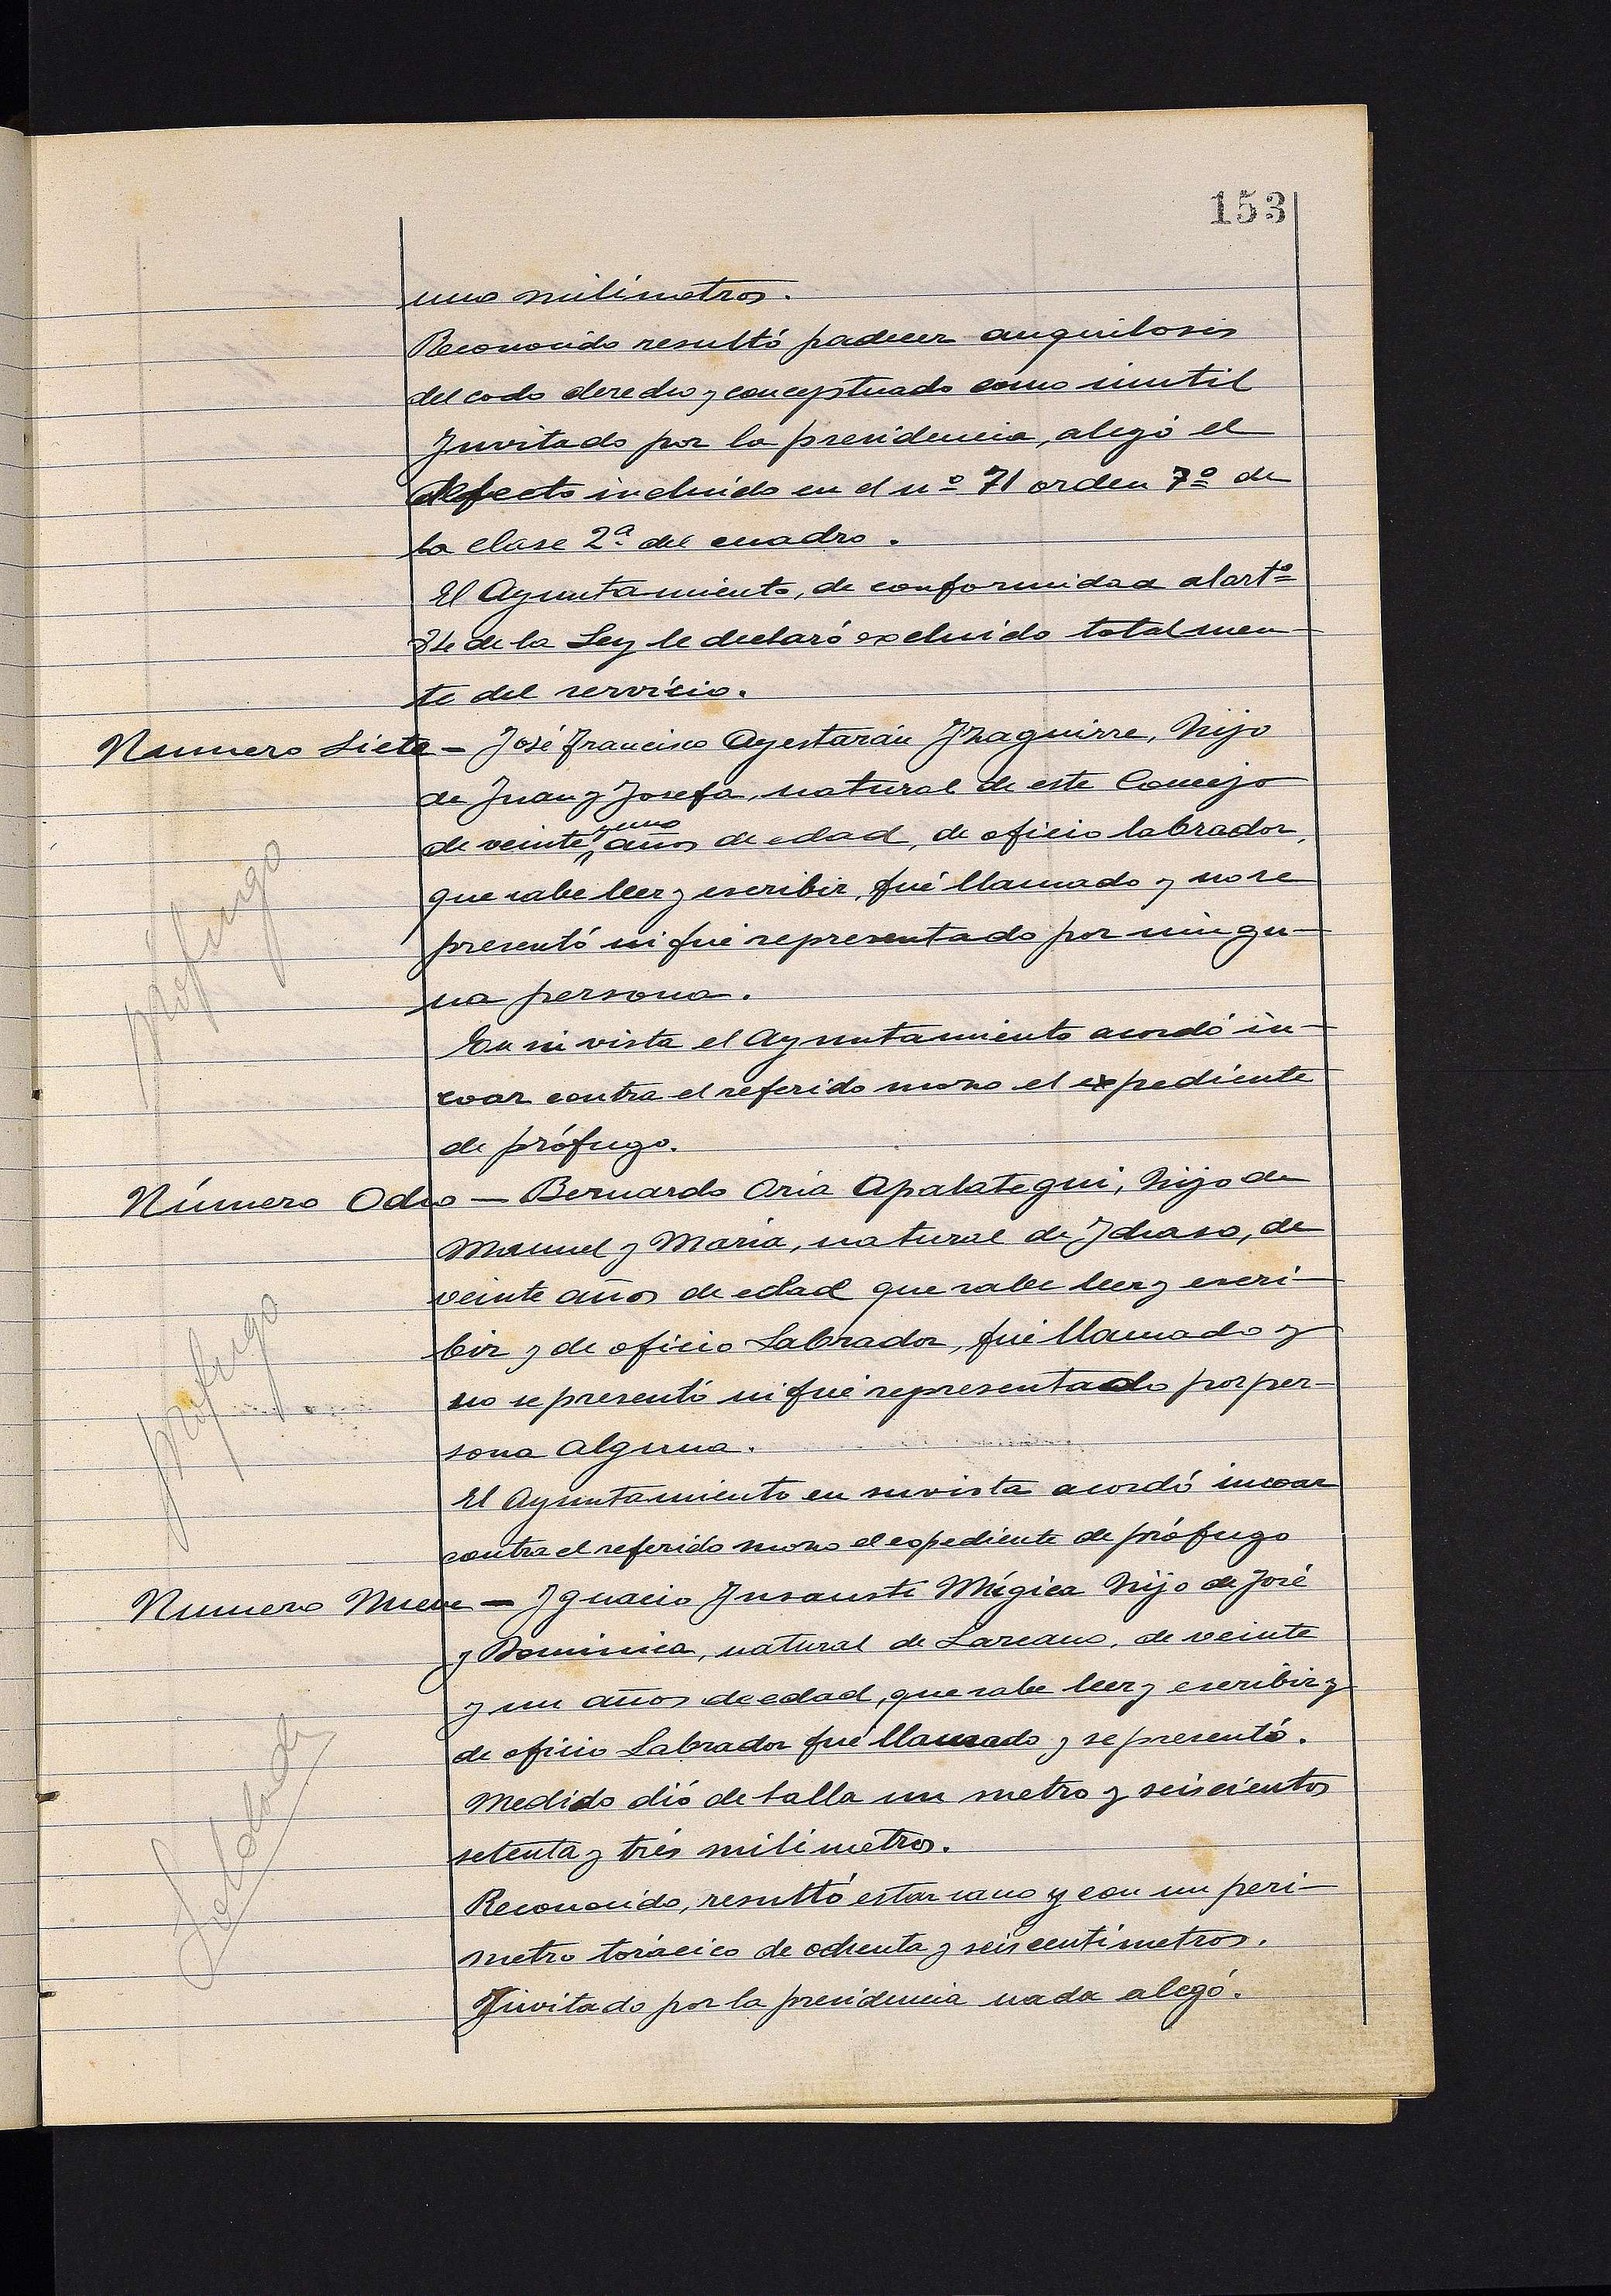 153
uno milimetros.
Reconocido resultó padecer anquilosis
del codo derecho y conceptuado como inutil
Invitado por la presidencia, alegó el
defecto incluido en el nº 71 orden 7º de
la clase 2ª del cuadro.
El Ayuntamiento, de conformidad al artº
de la Ley le declaró excluido totalmen-
te del servicio.
Numero Siete - José Francisco Ayestarán Yzaguirre, hijo
de Juan y Josefa, natural de este Concejo
de veinte y uno años de edad, de oficio labrador,
que sabe leer y escribir, fué llamado y no se
presentó ni fué representado por ningu-
na persona.
prófugo
En su vista el Ayuntamiento acordó in-
coar contra el referido mozo el expediente
de prófugo.
Número Ocho - Bernardo Oria Apalategui, hijo de
Manuel y Maria, natural de Ydiaso, de
veinte años de edad que sabe leer y escri-
bir y de oficio Labrador, fué llamado y
no se presentó ni fué representado por per-
sona alguna.
prófugo
El Ayuntamiento en su vista acordó incoar
contra el referido mozo el expediente de prófugo
Numero Nueve - Ygnacio Ynsausti Múgica hijo de José
y Dominica, natural de Lazcano, de veinte
y un años de edad, que sabe leer y escribir y
de oficio Labrador fué llamado y se presentó.
Medido dió de talla un metro y seiscientos
setenta y trés milimetros.
Soldado
Reconocido, resultó estar sano y con un peri-
metro torácico de ochenta y seis centímetros.
Invitado por la presidencia nada alegó.